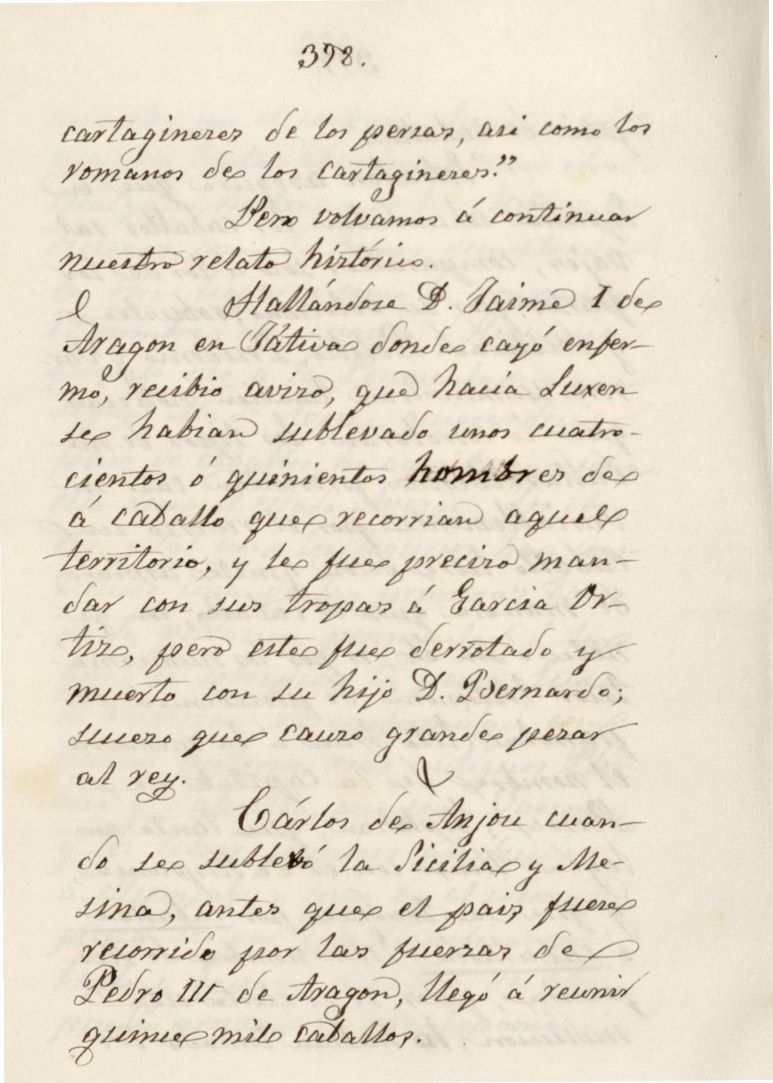 398.
cartagineses de los persas, asi como los
romanos de los cartagineses."
Pero volvamos á continuar
nuestro relato histórico.
Hallándose D. Jaime I de
Aragon en Játiva donde cayó enfer-
mo, recibio aviso, que hacia Luxen
se habian sublevado unos cuatro-
cientos ó quinientos hombres de
á caballo que recorrian aquel
territorio, y le fue preciso man-
dar con sus tropas á Garcia Or-
tiz, pero este fue derrotado y
muerto con su hijo D. Bernardo;
suceso que causo grande pesar
al rey.
Cárlos de Anjou cuan-
do se sublevó la Sicilia y Me-
sina, antes que el pais fuere
recorrido por las fuerzas de
Pedro III de Aragon, llegó á reunir
quince mil caballos.